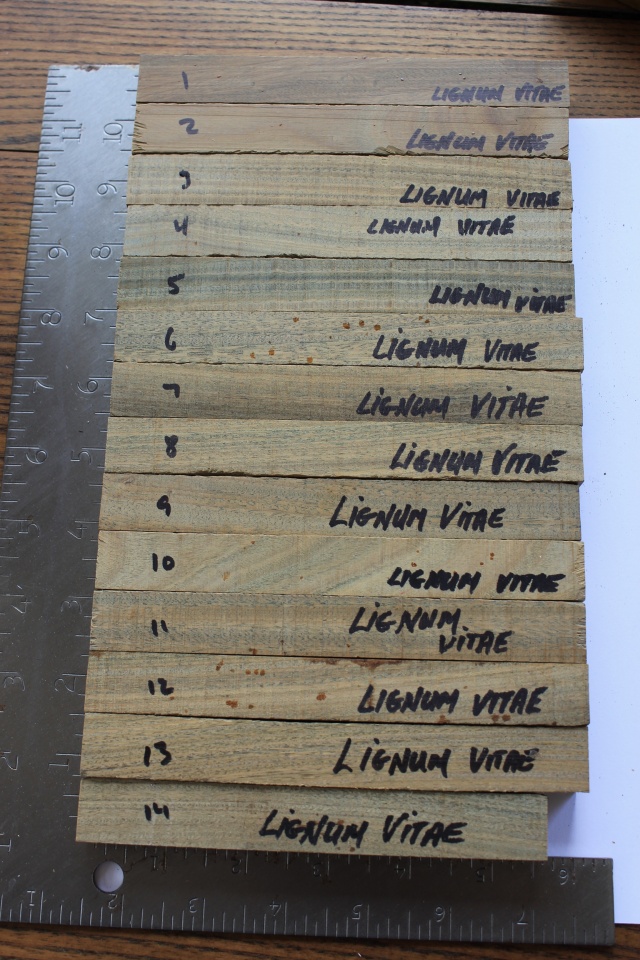 1 LIGNUM VITAE
2 LIGNUM VITAE
3 LIGNUM VITAE
4 LIGNUM VITAE
5 LIGNUM VITAE
6 LIGNUM VITAE
7 LIGNUM VITAE
8 LIGNUM VITAE
9 LIGNUM VITAE
10 LIGNUM VITAE
11 LIGNUM
VITAE
12 LIGNUM VITAE
13 LIGNUM VITAE
14 LIGNUM VITAE
11 10
10 9
9 8
8 7
7 6
6 5
4 3
3 2
2 1
1
16
1 2 3 4 5 6 7